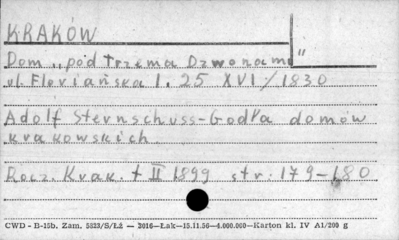 KRAKÓW
Dom „pod Trzema Dzwonami"
ul. Floriańska l. 25 XVI/1830
Adolf Sternschuss-Godła domów
krakowskich.
Rocz. Krak. t II 1899 str. 179-180
CWD - B-15b. Zam. 5823/S/Łż — 2016—Łak—15.11.56—4.000.000—Karton kl. IV A1/200 g